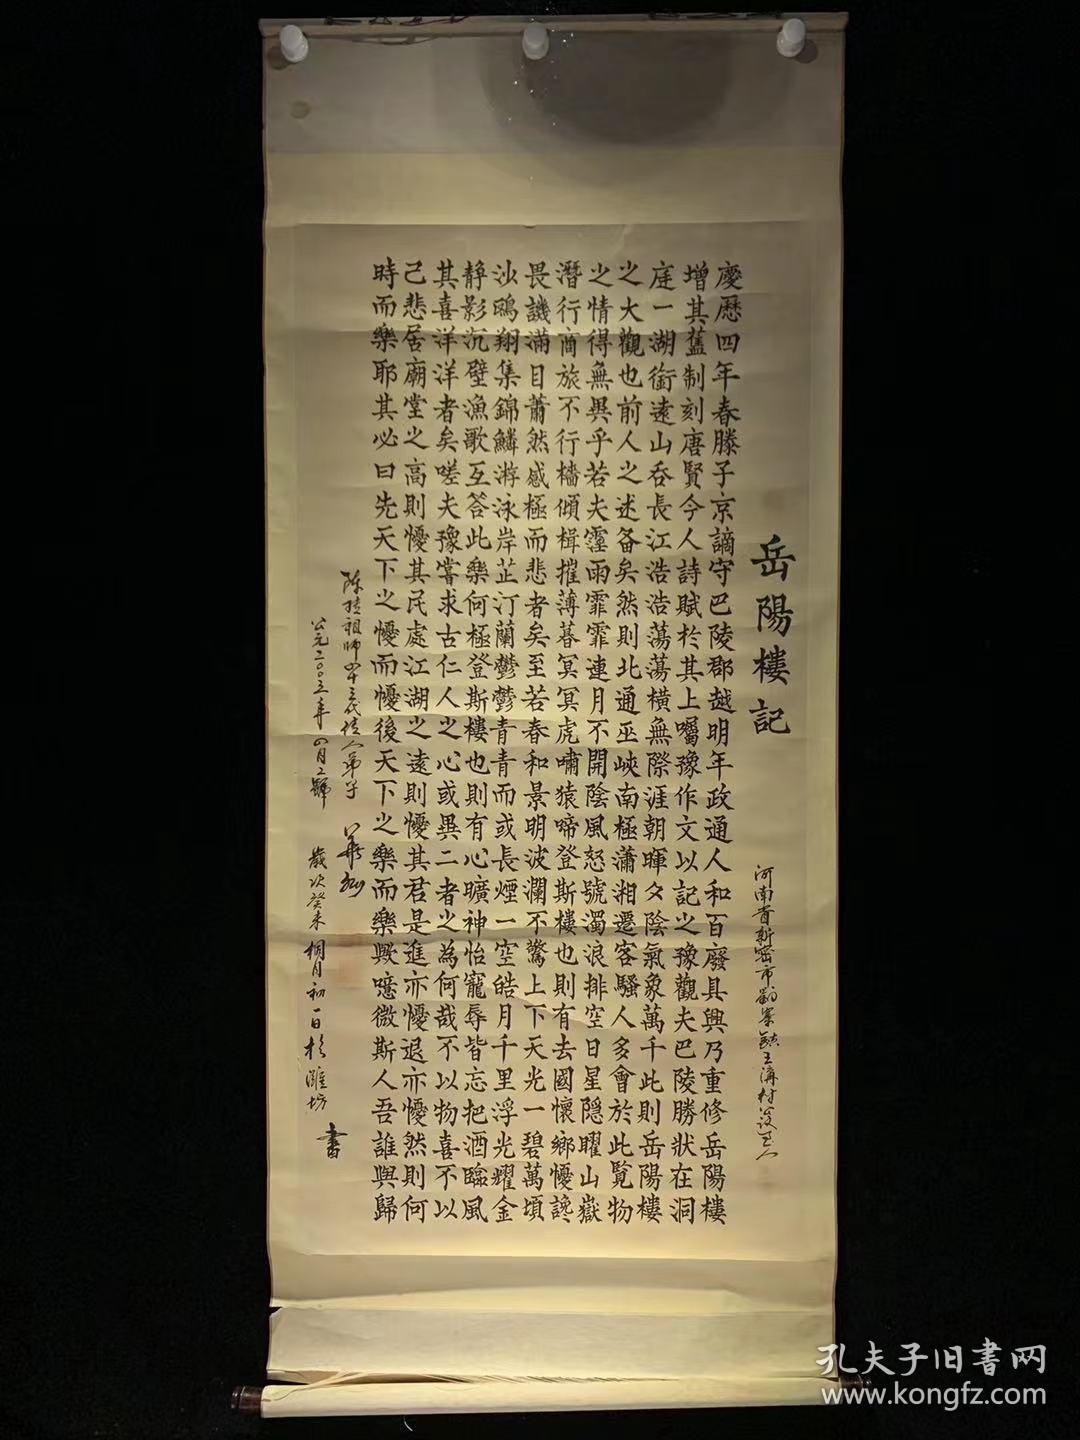 岳陽樓記
河南省新密市劉寨鎮王溝村
慶歷四年春滕子京謫守巴陵郡越明年政通人和百廢具興乃重修岳陽樓
增其舊制刻唐賢今人詩賦於其上囑豫作文以記之豫觀夫巴陵勝狀在洞
庭一湖銜遠山吞長江浩浩蕩蕩橫無際涯朝暉夕陰氣象萬千此則岳陽樓
之大觀也前人之述备矣然則北通巫峽南極瀟湘遷客騷人多會於此覧物
之情得無異乎若夫霪雨霏霏連月不開陰風怒號濁浪排空日星隱曜山嶽
潛行商旅不行檣傾楫摧薄暮冥冥虎嘯猿啼登斯樓也則有去國懷鄉懮讒
畏譏滿目蕭然感極而悲者矣至若春和景明波瀾不驚上下天光一碧萬頃
沙鷗翔集錦鱗游泳岸芷汀蘭鬱鬱青青而或長煙一空皓月千里浮光耀金
靜影沉璧漁歌互答此樂何極登斯樓也則有心曠神怡寵辱皆忘把酒臨風
其喜洋洋者矣嗟夫豫嘗求古仁人之心或異二者之為何哉不以物喜不以
己悲居廟堂之高則懮其民處江湖之遠則懮其君是進亦懮退亦懮然則何
時而樂耶其必曰先天下之懮而懮後天下之樂而樂歟噫微斯人吾誰與歸
陳 祖師 代传人弟子
公元二〇〇三年四月二號 歲次癸未桐月初一日於濰坊 書
孔夫子旧書网
www.kongfz.com